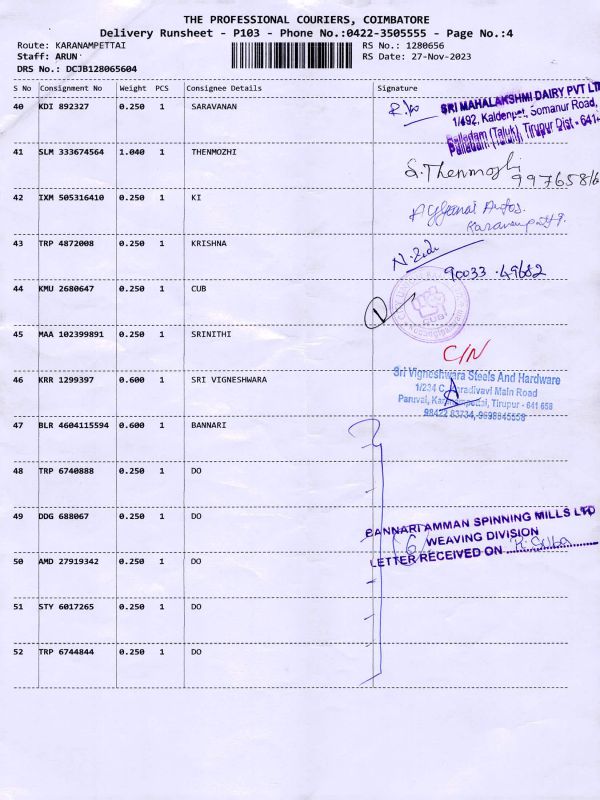 THE PROFESSIONAL COURIERS, COIMBATORE
Delivery Runsheet - P103 - Phone No.:0422-3505555 - Page No.:4
Route: KARANAMPETTAI
RS No.: 1280656
Staff: ARUN
RS Date: 27-Nov-2023
DRS No.: DCJB128065604
S No Consignment No Weight PCS Consignee Details Signature
40 KDI 892327 0.250 1 SARAVANAN
SRI MAHALAKSHMI DAIRY PVT LT
1/492, Somanur Road,
Palladam (Taluk), Tirupur Dist - 641
41 SLM 333674564 1.040 1 THENMOZHI
S. Thenmozhi
42 IXM 505316410 0.250 1 KI
43 TRP 4872008 0.250 1 KRISHNA
90033.49682
44 KMU 2680647 0.250 1 CUB
1
CUB
45 MAA 102399891 0.250 1 SRINITHI
C/N
46 KRR 1299397 0.600 1 SRI VIGNESHWARA
Sri Vigneshwara Steels And Hardware
1/234 Main Road
Paruvai, Tirupur - 641 658
98422 83734,
47 BLR 4604115594 0.600 1 BANNARI
48 TRP 6740888 0.250 1 DO
49 DDG 688067 0.250 1 DO
BANNARI AMMAN SPINNING MILLS LTD
6 WEAVING DIVISION
LETTER RECEIVED ON
50 AMD 27919342 0.250 1 DO
51 STY 6017265 0.250 1 DO
52 TRP 6744844 0.250 1 DO